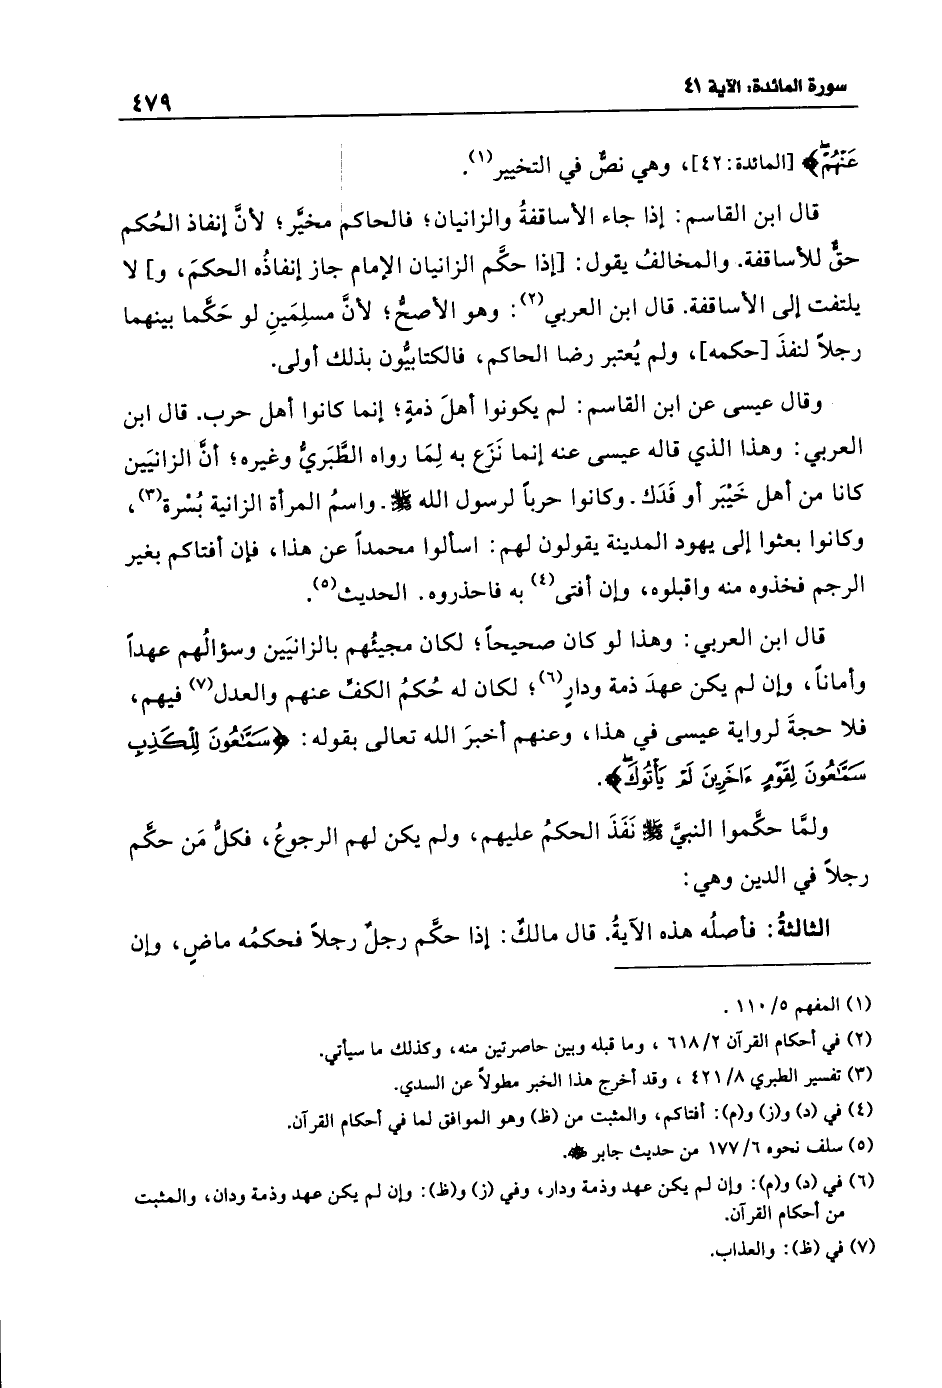 سورة المائدة: الآية ٤١
٤٧٩
عَنْهُمْۖ﴾ [المائدة: ٤٢]، وهي نصٌّ في التخيير(١).
قال ابن القاسم: إذا جاء الأساقفةُ والزانيان؛ فالحاكم مخيَّر؛ لأنَّ إنفاذ الحُكم
حقٌّ للأساقفة. والمخالفُ يقول: [إذا حكَّم الزانيان الإمام جاز إنفاذُه الحكمَ، و] لا
يلتفت إلى الأساقفة. قال ابن العربي(٢): وهو الأصحُّ؛ لأنَّ مسلِمَينِ لو حَكَّما بينهما
رجلاً لنفذَ [حكمه]، ولم يُعتبر رضا الحاكم، فالكتابيُّون بذلك أولى.
وقال عيسى عن ابن القاسم: لم يكونوا أهلَ ذمةٍ؛ إنما كانوا أهل حرب. قال ابن
العربي: وهذا الذي قاله عيسى عنه إنما نَزَع به لِمَا رواه الطَّبَريُّ وغيره؛ أنَّ الزانيَين
كانا من أهل خَيْبَر أو فَدَك ـ وكانوا حرباً لرسول الله ﷺ ـ واسمُ المرأة الزانية بُسْرة(٣)،
وكانوا بعثوا إلى يهود المدينة يقولون لهم: اسألوا محمداً عن هذا، فإن أفتاكم بغير
الرجم فخذوه منه واقبلوه، وإن أفتى(٤) به فاحذروه. الحديث(٥).
قال ابن العربي: وهذا لو كان صحيحاً؛ لكان مجيئُهم بالزانيَين وسؤالُهم عهداً
وأماناً، وإن لم يكن عهدَ ذمة ودارٍ(٦)؛ لكان له حُكمُ الكفِّ عنهم والعدل(٧) فيهم،
فلا حجةَ لرواية عيسى في هذا، وعنهم أخبرَ الله تعالى بقوله: ﴿سَمَّٰعُونَ لِلْكَذِبِ
سَمَّٰعُونَ لِقَوْمٍ ءَاخَرِينَ لَمْ يَأْتُوكَۖ﴾.
ولمَّا حكَّموا النبيَّ ﷺ نَفَذَ الحكمُ عليهم، ولم يكن لهم الرجوعُ، فكلُّ مَن حكَّم
رجلاً في الدين وهي:
الثالثةُ: فأصلُه هذه الآيةُ. قال مالكٌ: إذا حكَّم رجلٌ رجلاً فحكمُه ماضٍ، وإن
(١) المفهم ٥/ ١١٠ .
(٢) في أحكام القرآن ٢/ ٦١٨ ، وما قبله وبين حاصرتين منه، وكذلك ما سيأتي.
(٣) تفسير الطبري ٨/ ٤٢١ ، وقد أخرج هذا الخبر مطولاً عن السدي.
(٤) في (د) و(ز) و(م): أفتاكم، والمثبت من (ظ) وهو الموافق لما في أحكام القرآن.
(٥) سلف نحوه ٦/ ١٧٧ من حديث جابر ﷺ.
(٦) في (د) و(م): وإن لم يكن عهد وذمة ودار، وفي (ز) و(ظ): وإن لم يكن عهد وذمة ودان، والمثبت
من أحكام القرآن.
(٧) في (ظ): والعذاب.